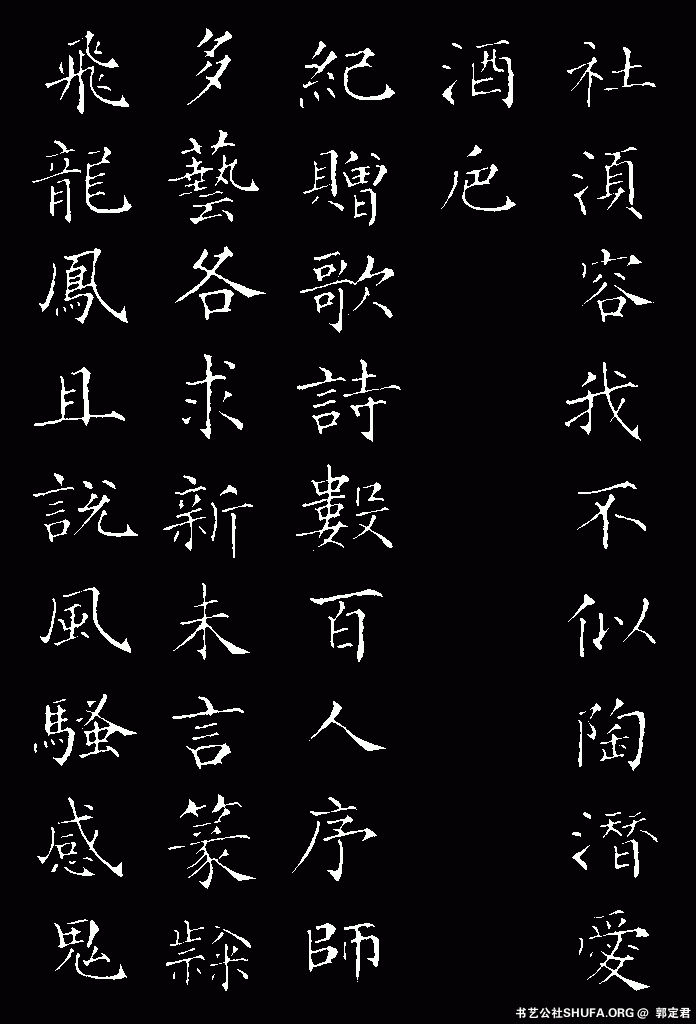 社湏容我不似陶潛愛
酒卮
紀贈歌詩數百人序師
多藝各求新未言篆隸
飛龍鳳且說風騷感鬼
书艺公社SHUFA.ORG @ 郭定君